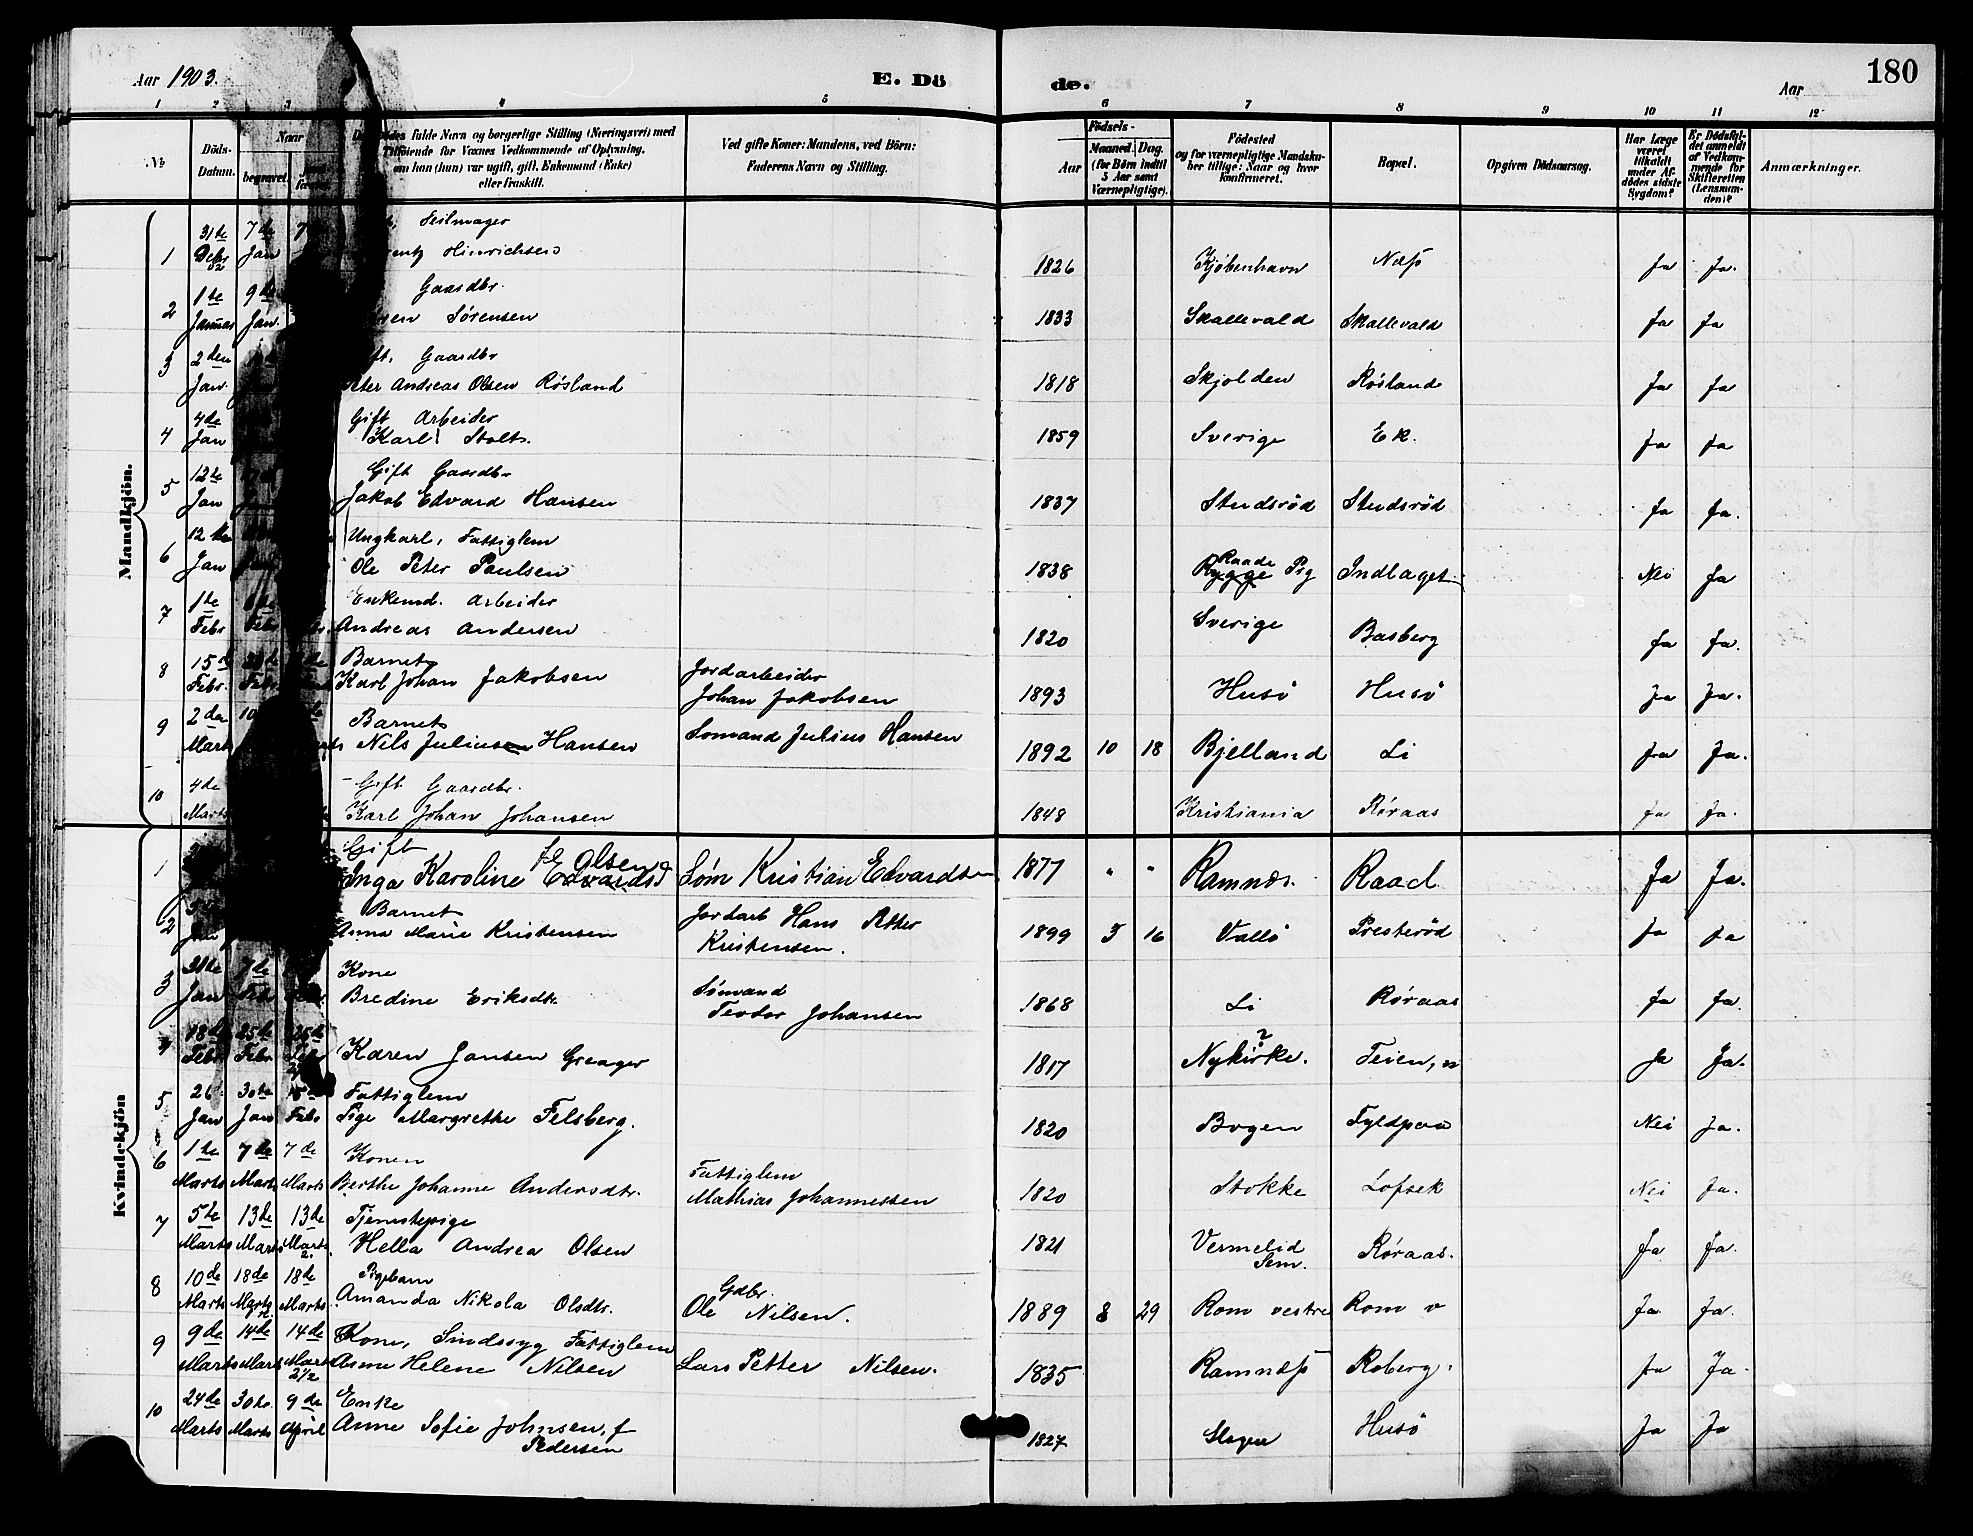 Aar 1903.
E. Dö
de.
Aar
180
1 2 3 4 5 6 7 8 9 10 11 12
No
Döds-Datum.
Naar
begravet.
Dødes fulde Navn og borgerlige Stilling (Næringsvei) med
Tilføiende for Voxnes Vedkommende af Oplysning,
om han (hun) var ugift, gift, Enkemand (Enke)
eller fraskilt.
Ved gifte Koner: Mandens, ved Börn:
Faderens Navn og Stilling.
Födsels-
Aar
Maaned. Dag.
(for Børn indtil
5 Aar samt
Værnepligtige).
Födested
og for værnepligtige Mandska-
ber tillige: Naar og hvor
konfirmeret.
Bopæl.
Opgiven Dödsaarsag.
Har Læge
været
tilkaldt
under Af-
dødes sidste
Sygdom?
Er Dödsfal-
det anmeldt
af Vedkom-
mende for
Skifteretten
(Lensman-
den)?
Anmærkninger.
Mandkjön.
31te 7de 7 Seilmager
1 Debr 02 Jan Hinrichsen 1826 Kjøbenhavn Næss Ja Ja.
1te 9de Gaardbr.
2 Januar Jan. Sørensen 1833 Skallevald Skallevald Ja Ja
2den Gaardbr
3 Jan. Andreas Olsen Røsland 1818 Skjolden Røsland Ja Ja
4de Gift Arbeider
4 Jan Karl Stolt. 1859 Sverige Ek. Ja Ja
12te Gift Gaardbr
5 Jan Jakob Edvard Hansen 1837 Stendsrød Stendsrød Ja Ja.
12te Ungkarl, Fattiglem
6 Jan Ole Peter Paulsen 1838 Rygge Raade Prg Indlaget Nei Ja
1te Enkemd. Arbeider
7 Febr Febr Andreas Andersen 1820 Sverige Basberg Ja Ja.
15de Barnet Jordarbeider
8 Febr. Febr Karl Johan Jakobsen Johan Jakobsen 1893 Husø Husø Ja Ja.
2den Barnet
9 Marts Nils Juliusen Hansen Sømand Julius Hansen 1892 10 18 Bjelland Li Ja Ja.
4de Gift Gaardbr.
10 Marts Karl Johan Johansen 1848 Kristiania Røraas Ja Ja.
Kvindekjön
Gift f. Olsen
1 Inga Karoline Edvards Søm Kristian Edvardsen 1877 " " Ramnæs. Raad Ja Ja.
Barnet Jordarb Hans Petter
2 Jan Anna Marie Kristensen Kristensen. 1899 3 16 Vallø Presterød Ja Ja
31te 7de Kone Sømand
3 Jan Febr Bredine Eriksdtr. Teodor Johansen 1868 Li Røraas Ja Ja.
18de 25de 25de
4 Febr Febr Febr Karen Jansen Greager 1817 Nykirke. ? Teien, n Ja Ja.
26de 30te 15de Fattiglem
5 Jan Jan Febr Pige Margrethe Felsberg. 1820 Bogen Fyldpaa Nei Ja.
1te 7de 7de Konen Fattiglem
6 Marts Marts Marts Berthe Johanne Andersdtr. Mathias Johannessen 1820 Stokke Lofsek Nei Ja.
5te 13de 13de Tjenstepige
7 Marts Marts Marts 2. Hella Andrea Olsen 1821 Vermelid Sem. Røraas. Ja Ja.
10de 18de 18de Pigebarn Gdbr.
8 Marts Marts Marts Amanda Nikola Olsdtr. Ole Nilsen. 1889 8 29 Rom vestre Rom v Ja Ja.
9de 14de 14de Kone, Sindssyg Fattiglem
9 Marts Marts Marts 2½ Anne Helene Nilsen Lars Petter Nilsen. 1835 Ramnæss Roberg. Ja Ja
24de 30te 9de Enke
10 Marts Marts April Anne Sofie Johnsen, f 1827 Slagen Husø Ja Ja
Pedersen